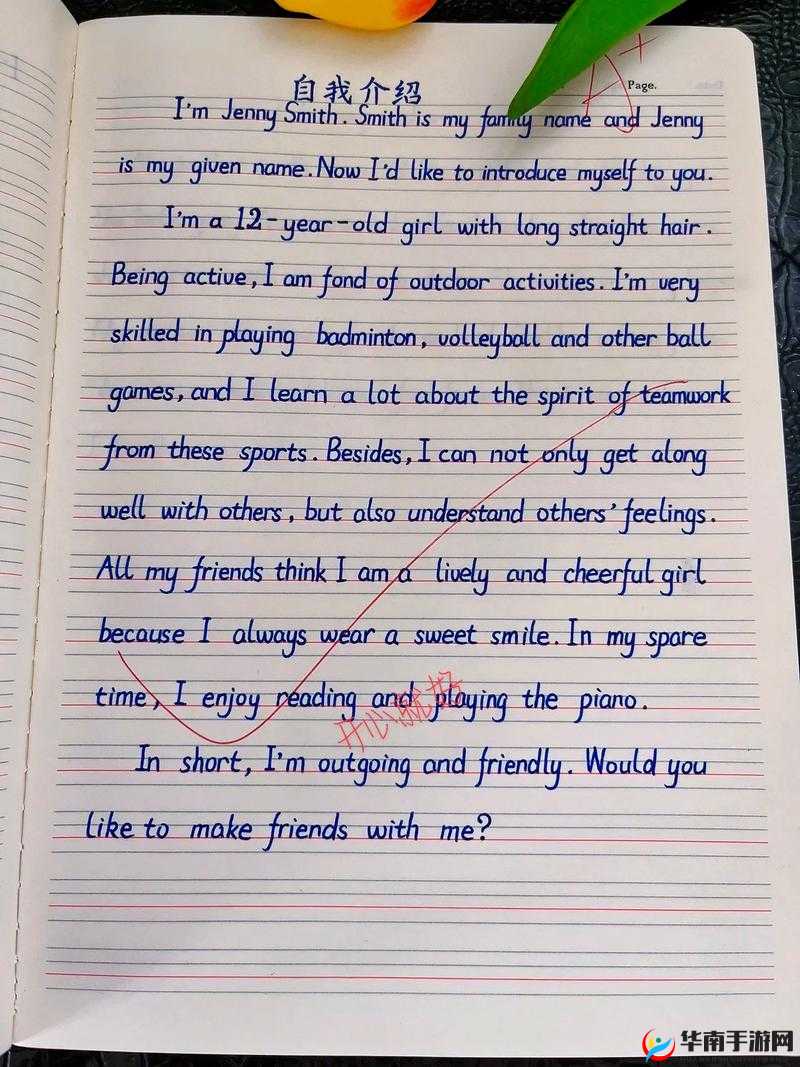 自我介绍
A+
Page.
I'm Jenny Smith. Smith is my family name and Jenny
is my given name. Now I'd like to introduce myself to you.
I'm a 12-year-old girl with long straight hair.
Being active, I am fond of outdoor activities. I'm very
skilled in playing badminton, volleyball and other ball
games, and I learn a lot about the spirit of teamwork
from these sports. Besides, I can not only get along
well with others, but also understand others' feelings.
All my friends think I am a lively and cheerful girl
because I always wear a sweet smile. In my spare
time, I enjoy reading and playing the piano.
开心就好
In short, I'm outgoing and friendly. Would you
like to make friends with me?
华南手游网